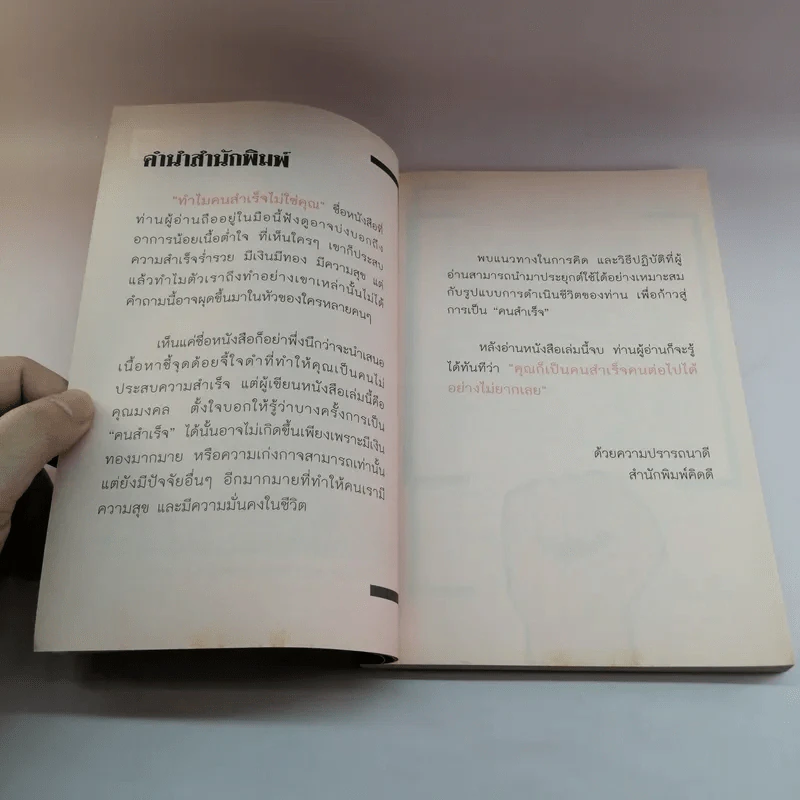 คำนำสำนักพิมพ์
"ทำไมคนสำเร็จไม่ใช่คุณ" ชื่อหนังสือที่
ท่านผู้อ่านถืออยู่ในมือนี้ฟังดูอาจบ่งบอกถึง
อาการน้อยเนื้อต่ำใจ ที่เห็นใครๆ เขาก็ประสบ
ความสำเร็จร่ำรวย มีเงินมีทอง มีความสุข แต่
แล้วทำไมตัวเราถึงทำอย่างเขาเหล่านั้นไม่ได้
คำถามนี้อาจผุดขึ้นมาในหัวของใครหลายคนๆ
เห็นแค่ชื่อหนังสือก็อย่าพึ่งนึกว่าจะนำเสนอ
เนื้อหาชี้จุดด้อยจี้ใจดำที่ทำให้คุณเป็นคนไม่
ประสบความสำเร็จ แต่ผู้เขียนหนังสือเล่มนี้คือ
คุณมงคล ตั้งใจบอกให้รู้ว่าบางครั้งการเป็น
"คนสำเร็จ" ได้นั้นอาจไม่เกิดขึ้นเพียงเพราะมีเงิน
ทองมากมาย หรือความเก่งกาจสามารถเท่านั้น
แต่ยังมีปัจจัยอื่นๆ อีกมากมายที่ทำให้คนเรามี
ความสุข และมีความมั่นคงในชีวิต
พบแนวทางในการคิด และวิธีปฏิบัติที่ผู้
อ่านสามารถนำมาประยุกต์ใช้ได้อย่างเหมาะสม
กับรูปแบบการดำเนินชีวิตของท่าน เพื่อก้าวสู่
การเป็น "คนสำเร็จ"
หลังอ่านหนังสือเล่มนี้จบ ท่านผู้อ่านก็จะรู้
ได้ทันทีว่า "คุณก็เป็นคนสำเร็จคนต่อไปได้
อย่างไม่ยากเลย"
ด้วยความปรารถนาดี
สำนักพิมพ์คิดดี